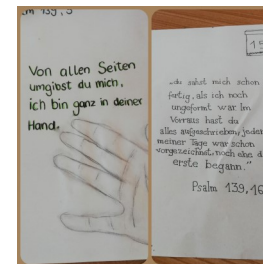 Von allen Seiten
umgibst du mich,
ich bin ganz in deiner
Hand.
„du sahst mich schon
fertig, als ich noch
ungeformt war. Im
Vorraus hast du
alles aufgeschrieben, jeder
meiner Tage war schon
vorgezeichnet, noch ehe d
erste begann."
Psalm 139,16